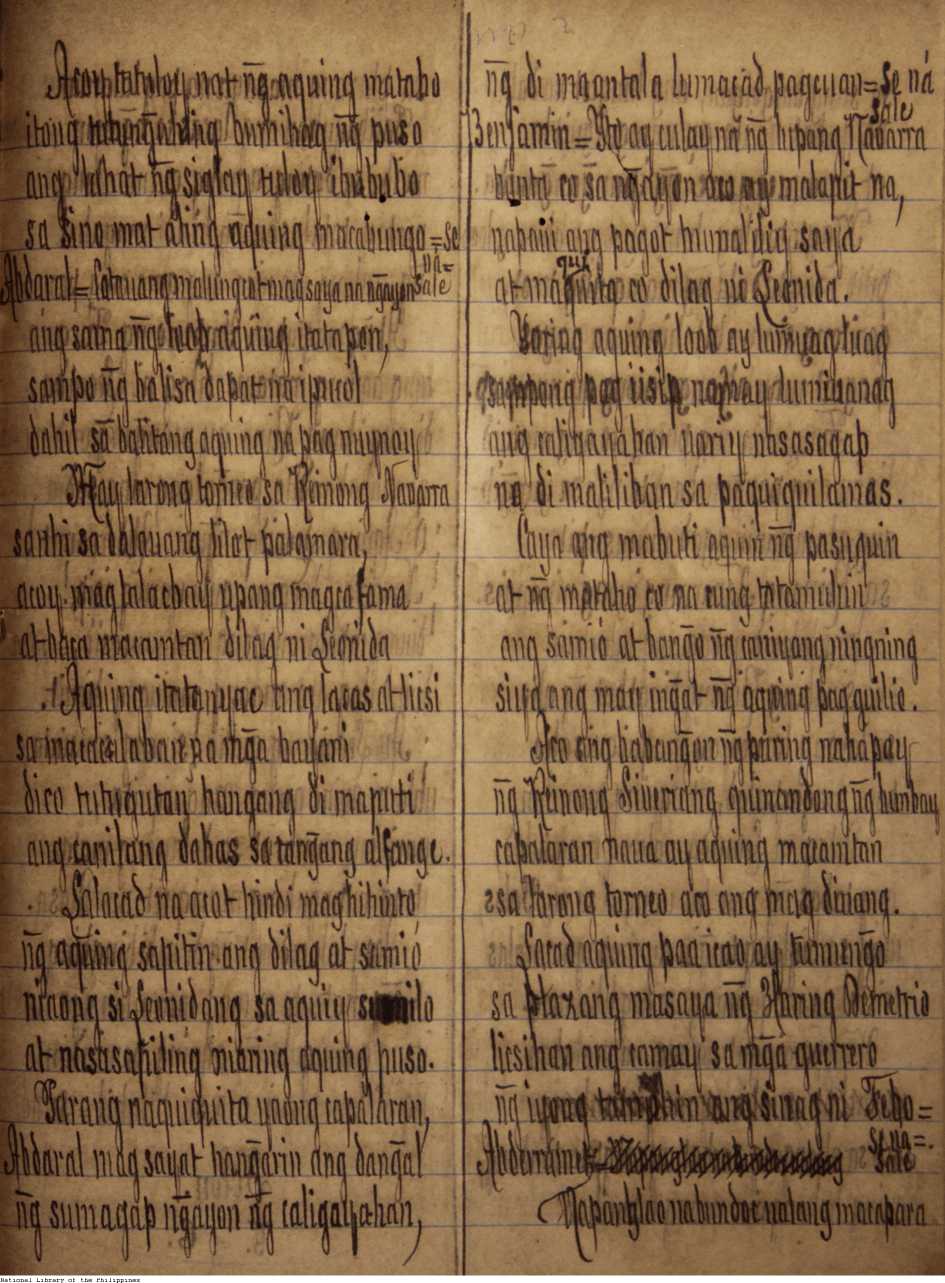 Acoy tutuloy nat ñg aquing mataho
itong bumihag ñg puso
ang lahat ñg siglay tuloy ibububo
sa sino mat aling aquing macabungo = se
na =
Abdaral = Catauang malungcot magsaya na ngayon sale
ang sama ñg loob aquing itatapon,
sampo ñg balisa dapat na ipucol
dahil sa balitang aquing na pag
May larong torneo sa Reinong Navarra
sanhi sa dalauang palamara,
acoy magtalacbay upang magcafama
at baca macamtan dilag ni Leonida
Aquing itatanyag ang lacas at licsi
sa macacalaban na mga bayani
dico tutugutan hangang di maputi
ang canilang dahas sa tangang alfange.
Lalacad na acot hindi maghihinto
ñg aquing sapitin ang dilag at samio
niaong si Leonidang sa aquiy sumilo
at nasasapiling niaring aquing puso.
Yarang naquiquita yaong capalaran,
Abdaral mag sayat hangarin ang dangal
ñg sumagap ñgayon ñg caligayahan,
ñg di maantala lumacad pagcuan = se na
sale
Benjamin = Ito ay culay na ñg lupang Navarra
banta co sa ngayon aco ay malapit na,
napaui ang pagot humaliliy saya
at maquita co dilag ni Leonida.
Yaring aquing loob ay lumuag luag
sampong pag iisip namay lumiuanag
ang caligayahan nariy nasasagap
na di malilihan sa paquiquilamas.
Caya ang mabuti aquin ñg pasuquin
at ñg mataho co na cung tatamuhin
ang samio at bango ñg caniyang ningning
siya ang may ingat ñg aquing pag guilio.
Aco ang babangon ñg puring nahapay
ñg Reinong Siveriang quinandong ñg lumbay
capalaran naua ay aquing macamtan
sa larong torneo aco ang mag diuang.
Lacad aquing paa icao ay tumungo
sa plazang masaya ñg Haring Demetrio
licsihan ang camay sa mga guerrero
ñg iyong ang sinag ni Febo =
se na =
Abderramen = sale
nabundoc ualang macapara